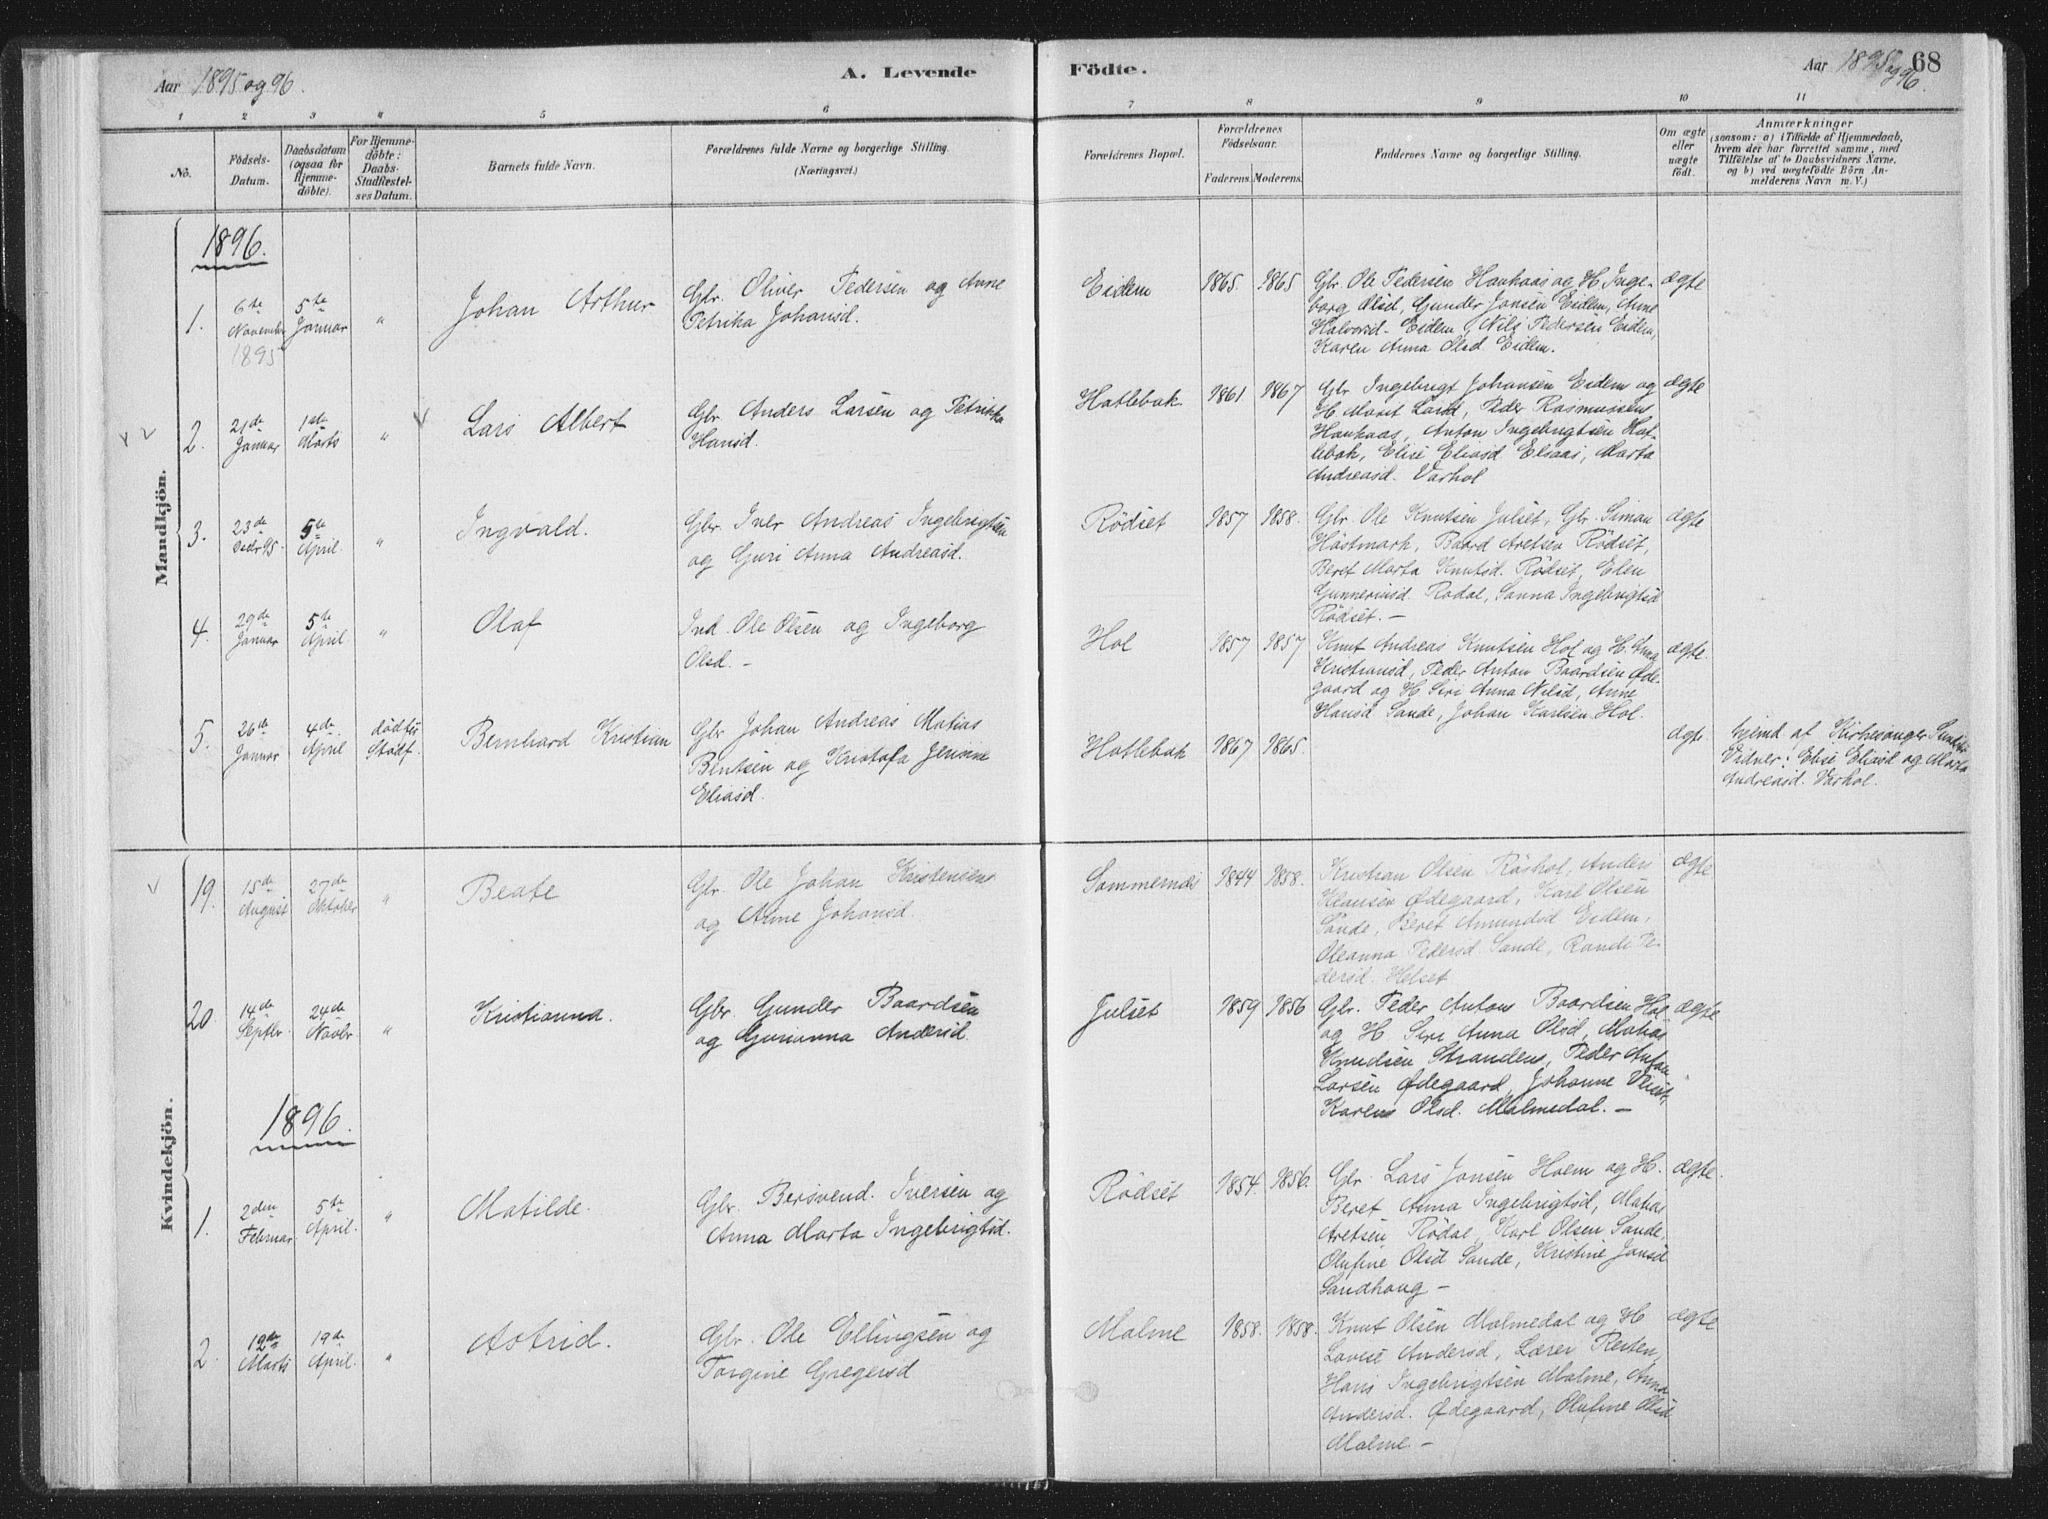 Aar 1895 og 96.
A. Levende
Födte.
Aar 1895 og 96.
68
1 2 3 4 5 6 7 8 9 10 11
No.
Födsels-Datum.
Daabsdatum (ogsaa for Hjemme-döbte).
For Hjemme-döbte: Daabs-Stadfæstel-ses Datum.
Barnets fulde Navn.
Forældrenes fulde Navne og borgerlige Stilling. (Næringsvei.)
Forældrenes Bopæl.
Forældrenes Födselsaar.
Faderens. Moderens.
Faddernes Navne og borgerlige Stilling.
Om ægte eller uægte födt.
Anmærkninger
(saasom: a) i Tilfælde af Hjemmedaab,
hvem der har forrettet samme, med
Tilföielse af to Daabsvidners Navne,
og b) ved uægtefödte Börn An-
melderens Navn m. V.)
Mandkjön.
1896.
1. 6te November 1895 5te Januar " Johan Arthur
Gbr. Oliver Pedersen og Anne
Petrika Johansd.
Eidem 1865. 1865
Gbr. Ole Pedersen Haukaas og H. Inge-
borg Olsd, Gunder Jonsen Eidem, Anne
Halvorsd. Eidem, Nils Pedersen Eidem,
Karen Anna Olsd. Eidem.
ægte
2. 21de Januar 1ste Marts " Lars Albert
Gbr. Anders Larsen og Petrikka
Hansd.
Hatlebak. 1861. 1867
Gbr. Ingebrigt Johansen Eidem og
H. Marit Larsd, Peder Rasmussen
Haukaas, Anton Ingebrigtsen Hat-
lebak, Elise Eliasd. Eliaas, Marta
Andreasd. Varhol
ægte
3. 23de Decbr 95. 5te April. " Ingvald.
Gbr. Iver Andreas Ingebrigtsen
og Guri Anna Andreasd.
Rödset 1857 1858.
Gbr. Ole Knutsen Julset, Gbr. Simon
Höstmark, Baard Aretsen Rödset,
Beret Marta Knutsd. Rödset, Elen
Gunneriusd. Rödal, Sanna Ingebrigtsd
Rödset. -
ægte
4. 29de Januar 5te April. " Olaf
Ind. Ole Olsen og Ingeborg
Olsd. -
Hol 1857 1857
Knut Andreas Knutsen Hol og H. Anna
Kristiansd, Peder Anton Baardsen Øde-
gaard og H. Siri Anna Nilsd, Anne
Hansd Sande, Johan Karlsen Hol.
ægte.
5. 26de Januar 4de April Bernhard Kristian
Gbr Johan Andreas Matias
Bentsen og Kristofa Jensine
Eliasd.
Hatlebak 1867 1865.
ægte
hjemd. af Kirkesanger
Vidner: Elise Eliasd og Marta
Andreasd. Varhol.
Kvindekjön.
19. 15de August 27de Oktober " Beate
Gbr. Ole Johan Kristensen
og Anne Johansd.
Sommernæs 1844 1858.
Kristian Olsen Röshol, Anders
Klausen Ødegaard, Karl Olsen
Sande, Beret Amundsd Eidem,
Oleanna Pedersd. Sande, Randi Pe-
dersd. Helset
ægte
20. 14de Septbr. 24de Novbr " Kristianna.
Gbr. Gunder Baardsen
og Gurianna Andersd.
Julset 1859 1856
Gbr. Peder Anton Baardsen Hol
og H. Siri Anna Olsd, Matias
Knudsen Stranden, Peder Anton
Larsen Ødegaard, Johanne
Karen Olsd. Malmedal. -
ægte
1896.
1. 2den Februar 5te April. " Matilde.
Gbr. Bersvend. Iversen og
Anna Marta Ingebrigtsd.
Rödset 1854. 1856.
Gbr. Lars Jonsen Hoem og H.
Beret Anna Ingebrigtsd, Matias
Aretsen Rödal, Karl Olsen Sande,
Olufine Olsd Sande, Kristine Jonsd
Sandhoug -
ægte.
2. 19de Marts 19de April. " Astrid.
Gbr. Ole Ellingsen og
Torgine Gregersd
Malme 1858. 1858.
Knut Olsen Malmedal og H
Lovise Andersd, Lærer Resten,
Hans Ingebrigtsen Malme, Anna
Andersd. Ødegaard, Olufine Olsd
Malme. -
ægte